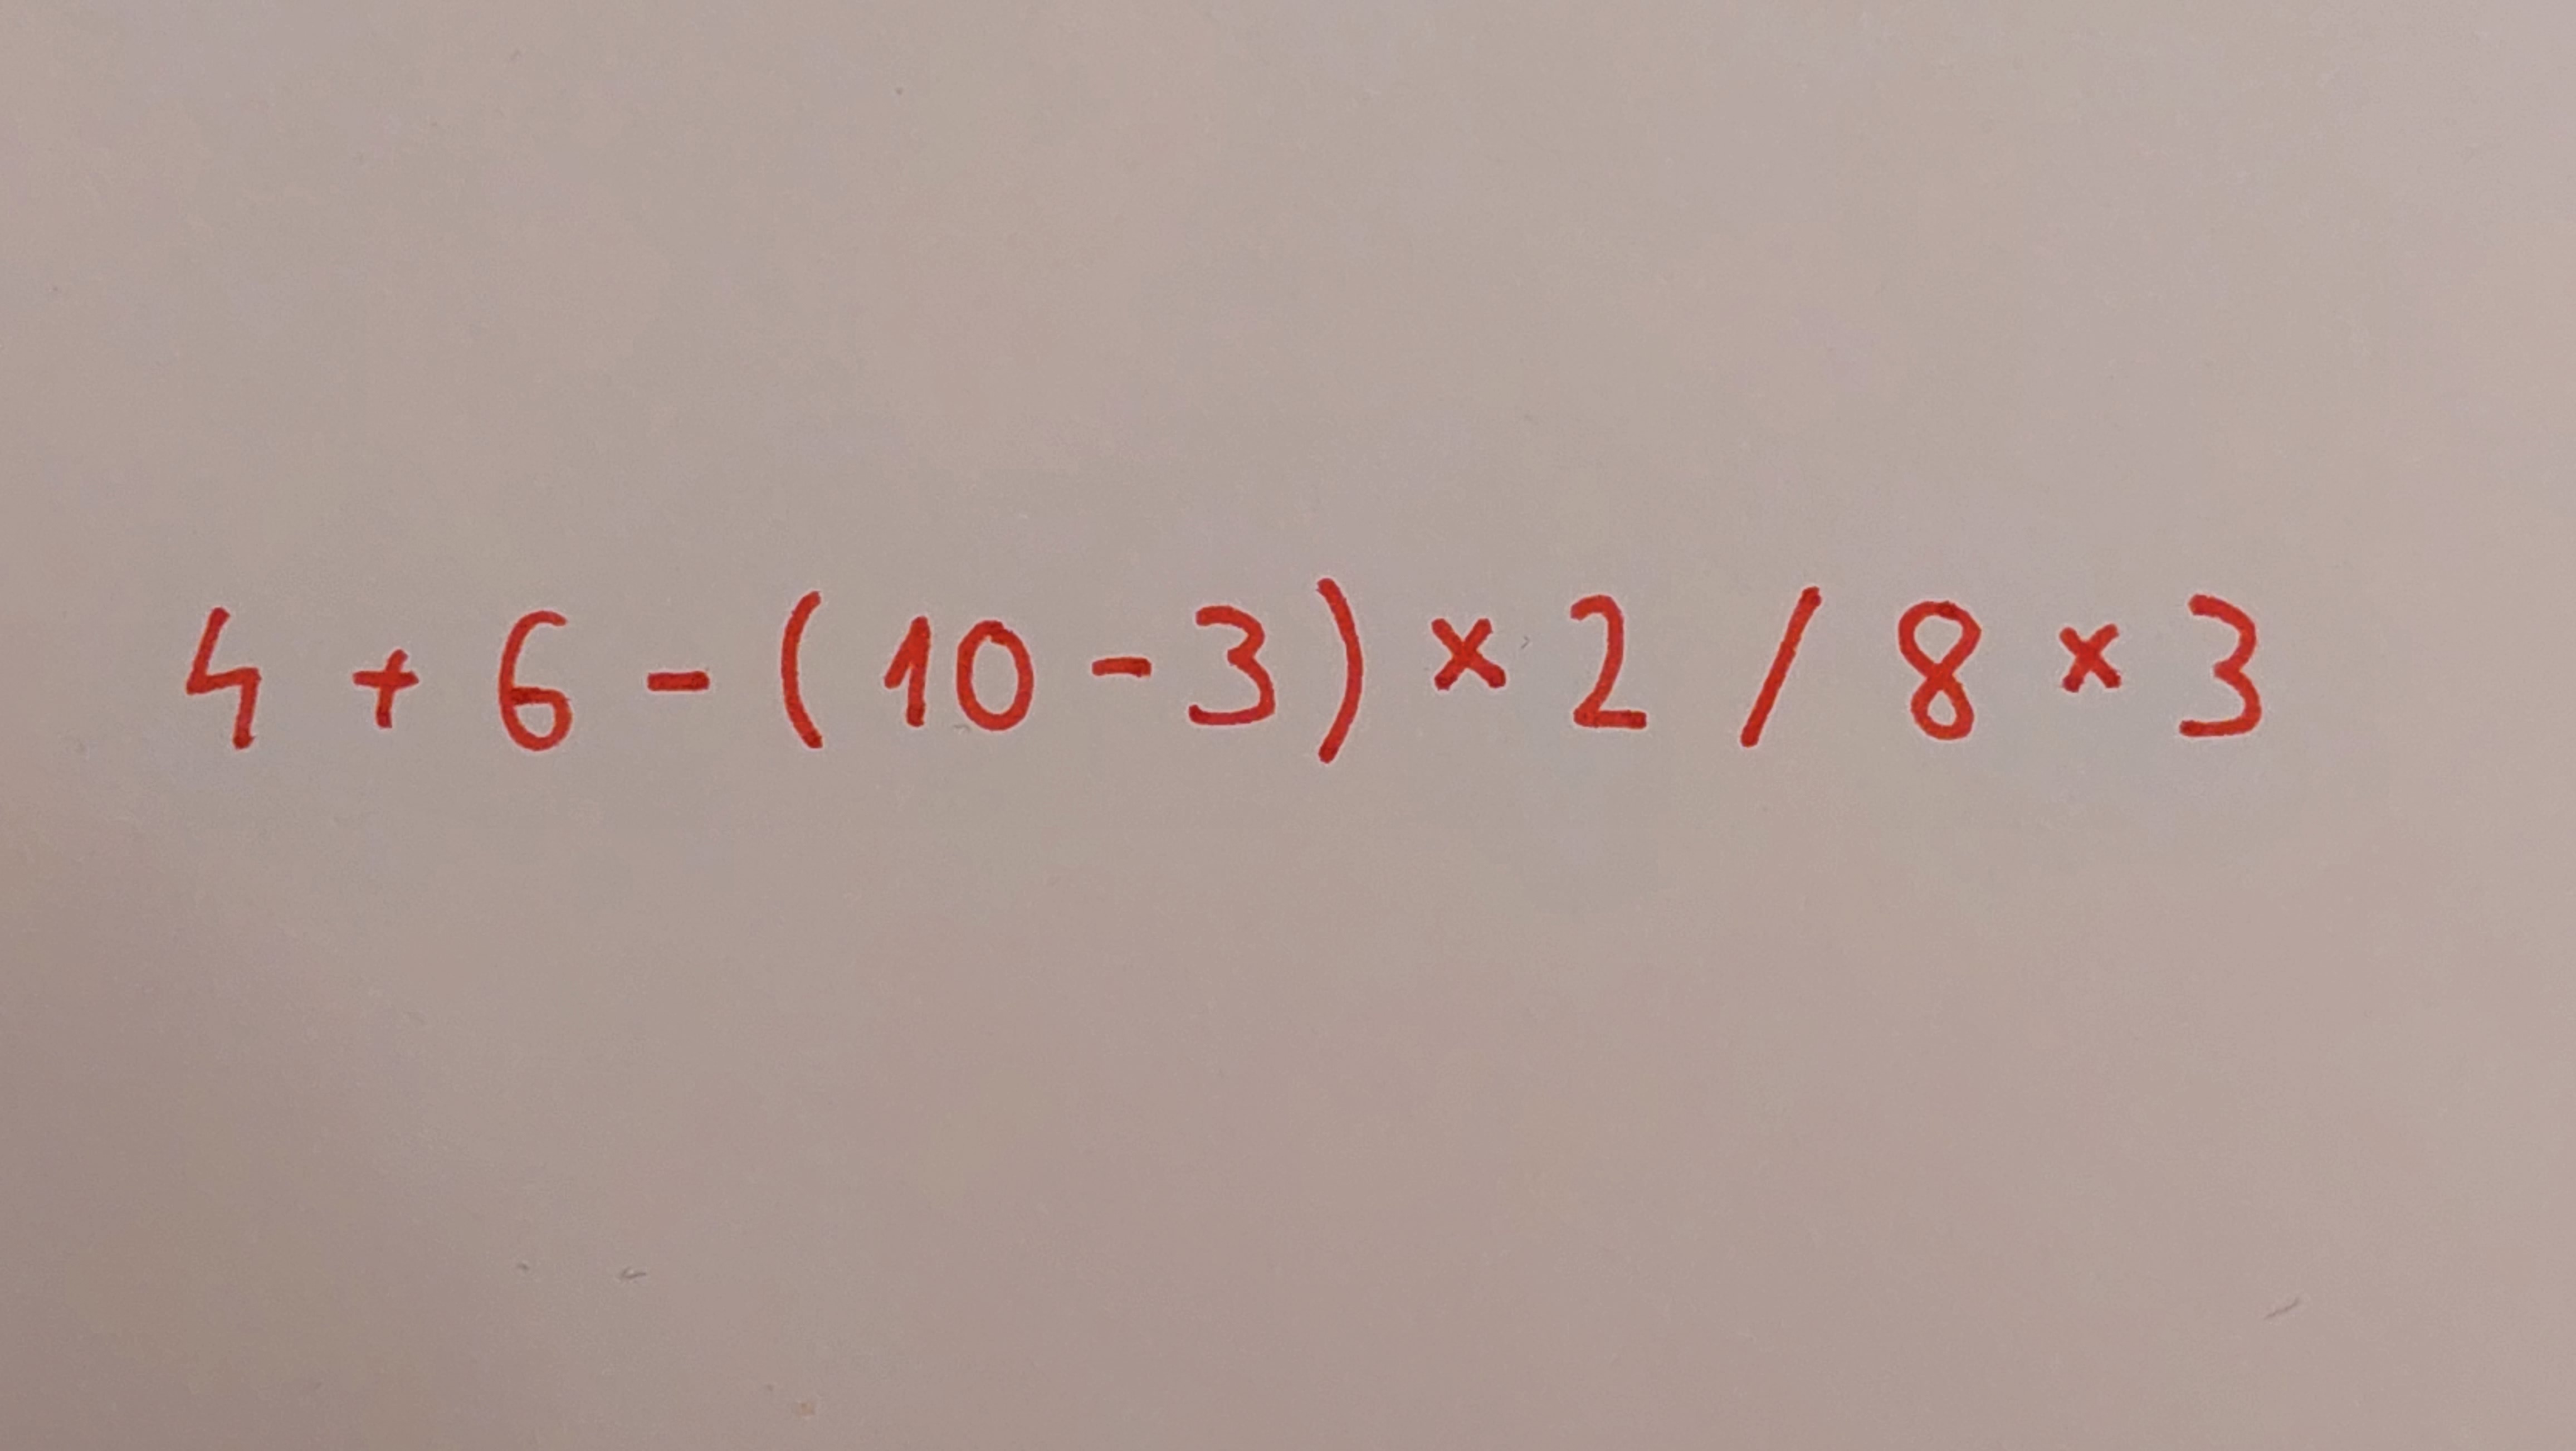 4 + 6 - ( 10 - 3 ) × 2 / 8 × 3